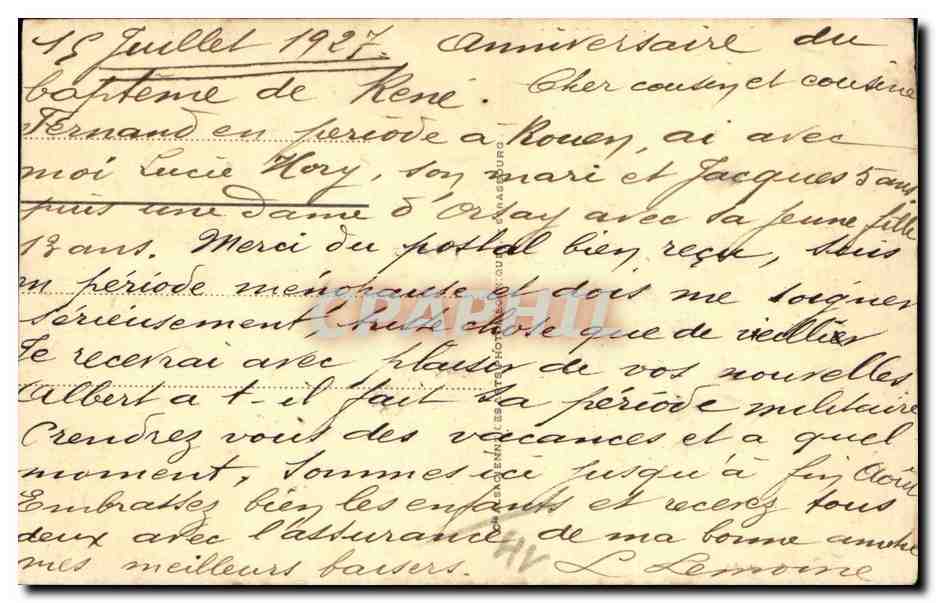 15 Juillet 1927. Anniversaire du
baptême de René. Cher cousin et cousine
Fernand en période à Rouen, ai avec
moi Lucie Hory, son mari et Jacques 5 ans
puis une dame d'Orsay avec sa jeune fille
13 ans. Merci du postal bien reçu, suis
en période ménopause et dois me soigner
sérieusement triste chose que de vieillir
Je recevrai avec plaisir de vos nouvelles
Albert a t-il fait sa période militaire
Prendrez vous des vacances et a quel
moment, sommes ici jusqu'à fin Août
Embrassez bien les enfants et recevez tous
deux avec l'assurance de ma bonne amitié
mes meilleurs baisers. L Lemoine
HV
CPAPHIL